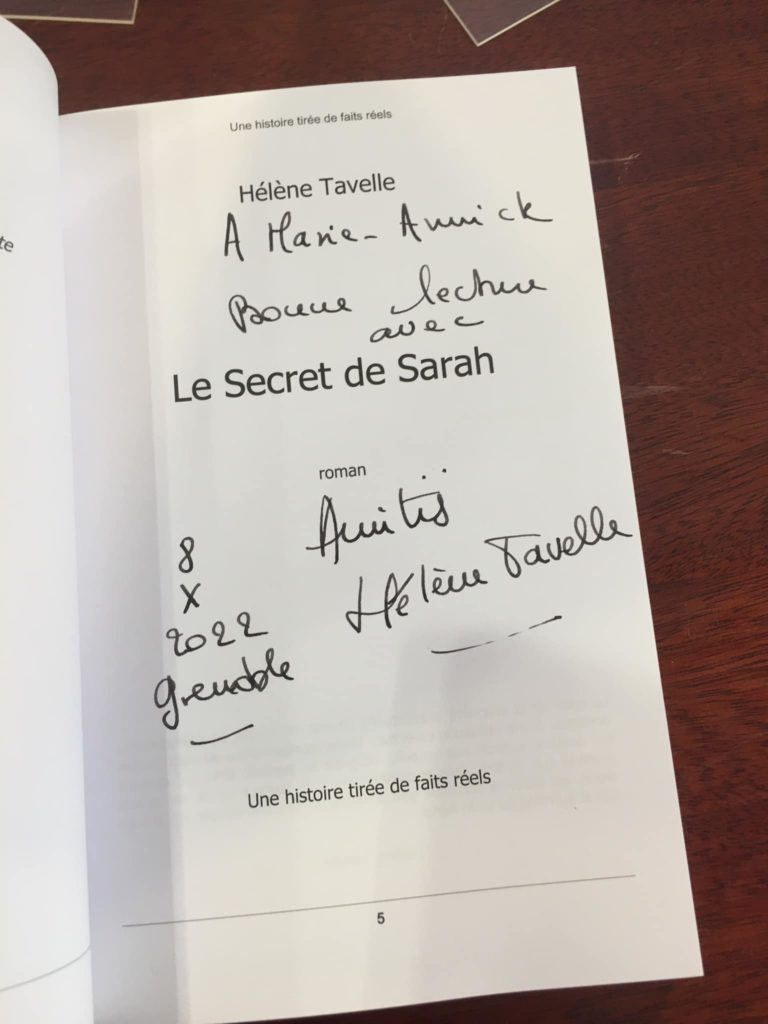 Une histoire tirée de faits réels
te
Hélène Tavelle
A Marie-Annick
Bonne lecture
avec
Le Secret de Sarah
roman
Amitiés
Hélène Tavelle
8
X
2022
Grenoble
Une histoire tirée de faits réels
5